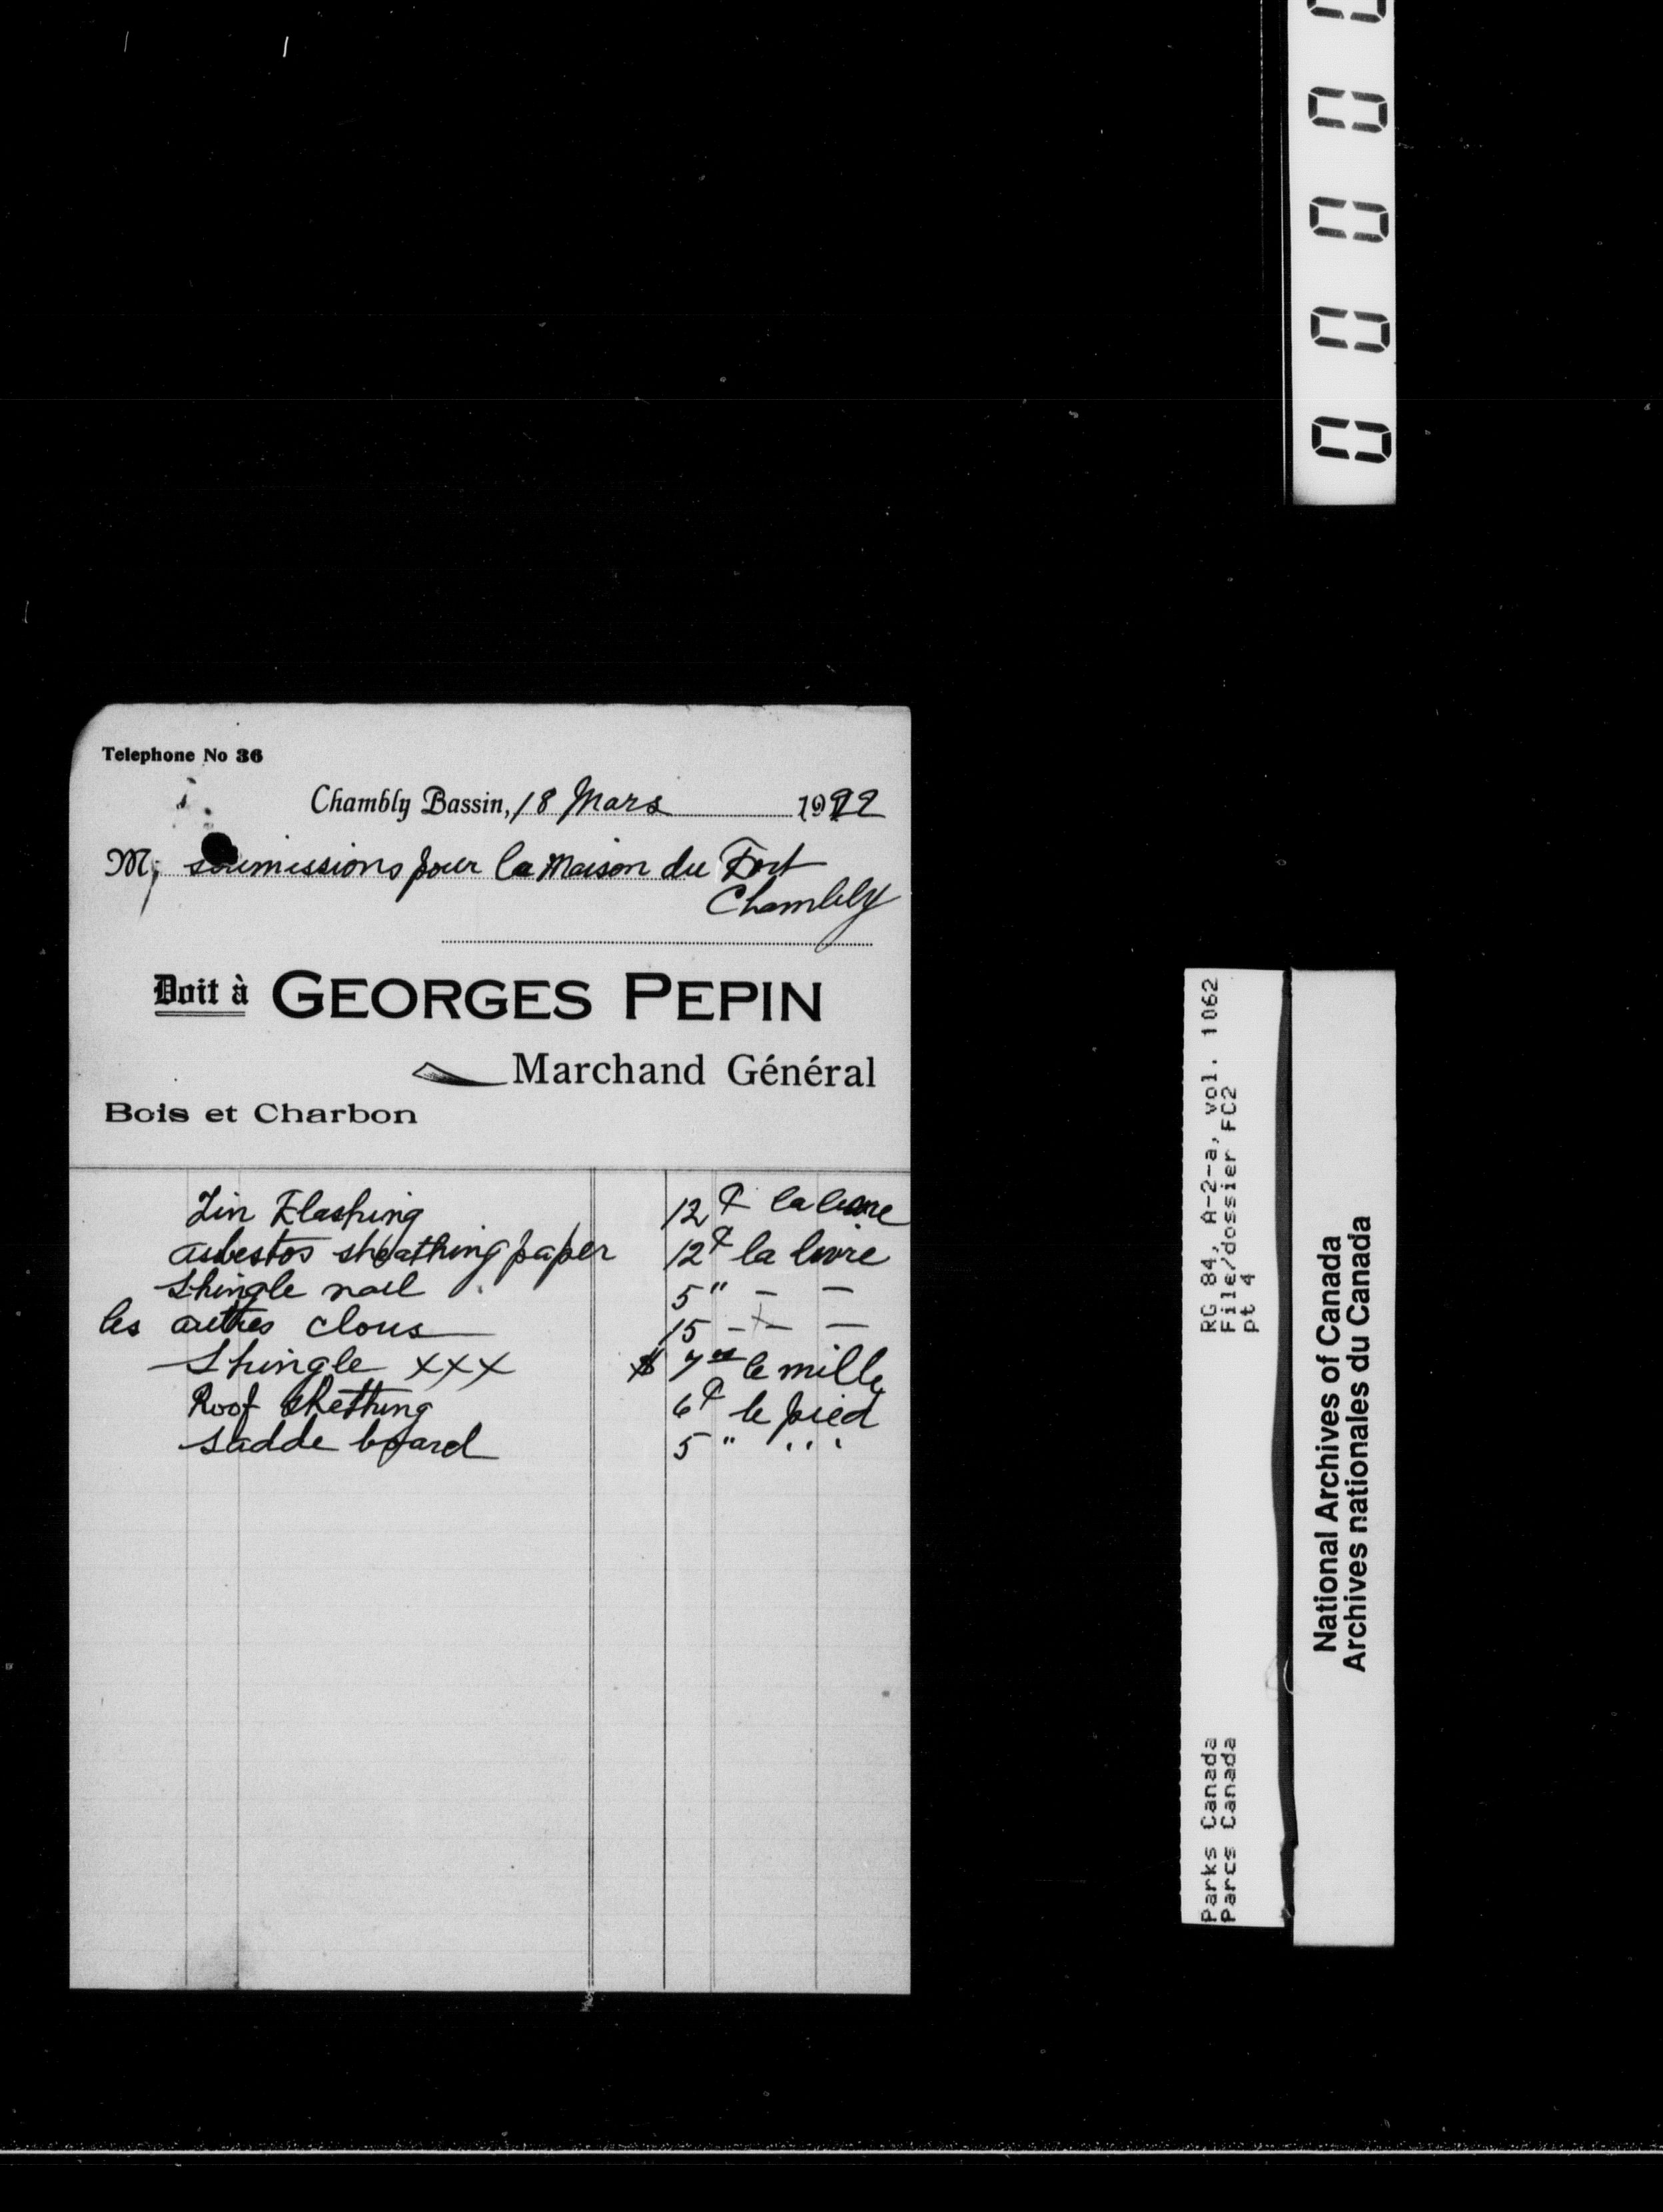 Telephone No 36
Chambly Bassin, 18 Mars 1922
M, soumissions pour la Maison du Fort
Chambly
Doit à GEORGES PEPIN
Marchand Général
Bois et Charbon
Tin Flashing 12 ¢ la livre
asbestos sheathing paper 12 ¢ la livre
Shingle nail 5 " — —
les autres clous 15 — — —
Shingle xxx $ 7 00 le mille
Roof shetting 6 ¢ le pied
sadde board 5 " " "
0 0 0 0 0
RG 84, A-2-a, vol. 1062
File/dossier FC2
pt 4
Parks Canada
Parcs Canada
National Archives of Canada
Archives nationales du Canada